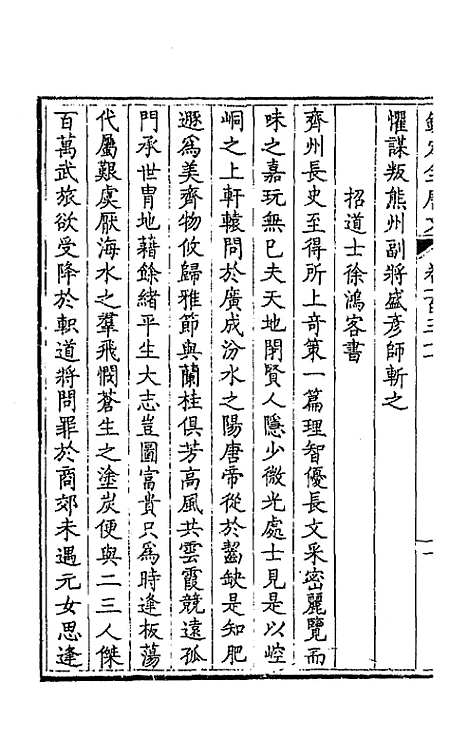 懼謀叛熊州副將盛彥師斬之
招道士徐鴻客書
齊州長史至得所上奇策一篇理智優長文采密麗覽而
味之嘉玩無已夫天地閉賢人隱少微光處士見是以崆
峒之上軒轅問於廣成汾水之陽唐帝從於齧缺是知肥
遯為美齊物攸歸雅節與蘭桂俱芳高風共雲霞競遠孤
門承世胄地藉餘緒平生大志豈圖富貴只為時逢板蕩
代屬艱虞厭海水之羣飛憫蒼生之塗炭便與二三人傑
百萬武旅欲受降於軹道將問罪於商郊未遇元女思逢